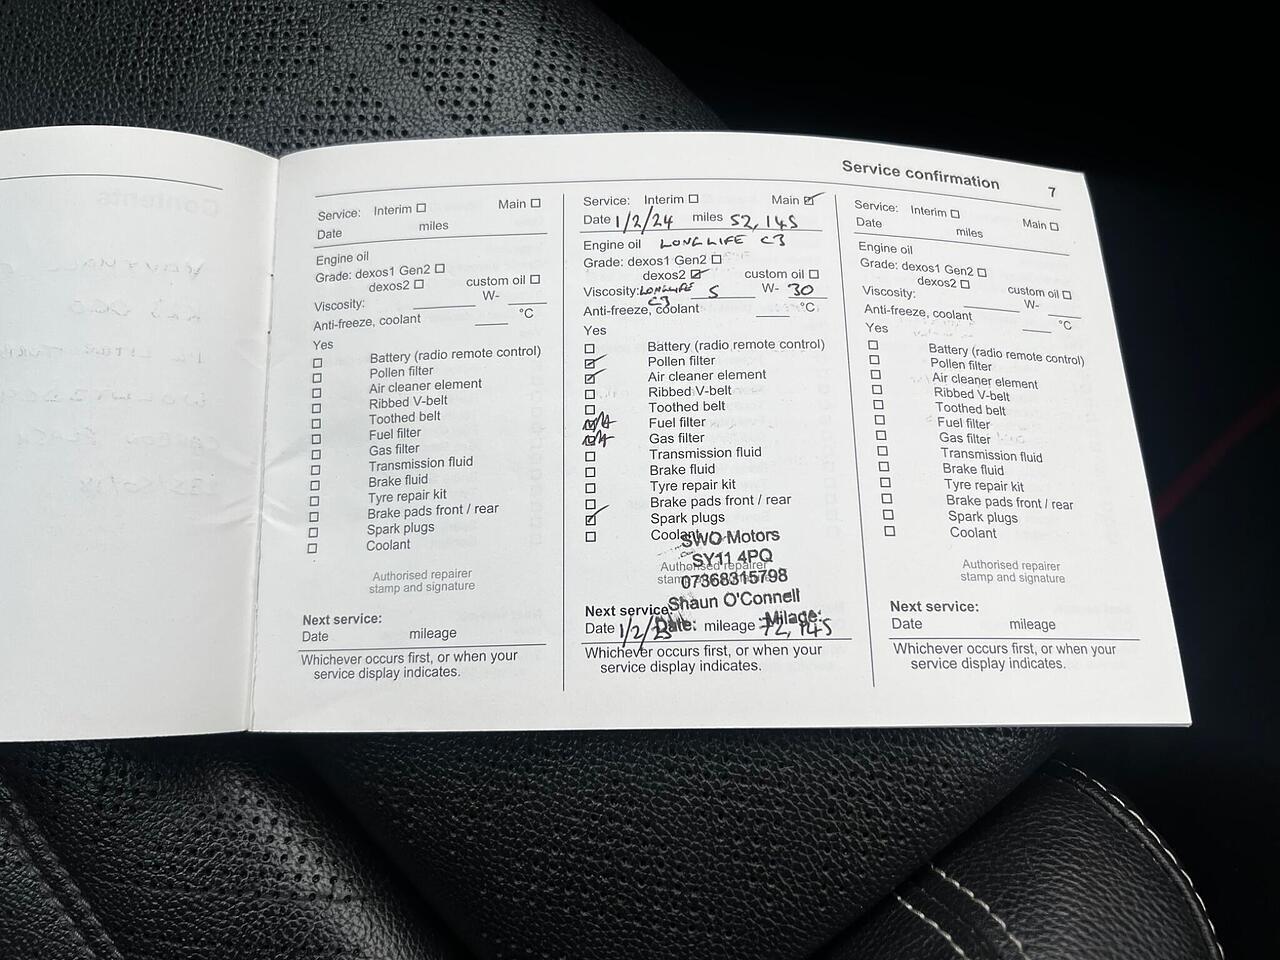 Service confirmation 7
Service: Interim Main
Date miles
Engine oil
Grade: dexos1 Gen2
dexos2 custom oil
Viscosity: W-
Anti-freeze, coolant °C
Yes
Battery (radio remote control)
Pollen filter
Air cleaner element
Ribbed V-belt
Toothed belt
Fuel filter
Gas filter
Transmission fluid
Brake fluid
Tyre repair kit
Brake pads front / rear
Spark plugs
Coolant
Authorised repairer
stamp and signature
Next service:
Date mileage
Whichever occurs first, or when your
service display indicates.
Service: Interim Main
Date 1/2/24 miles 52,145
Engine oil LONGLIFE C3
Grade: dexos1 Gen2
dexos2 custom oil
Viscosity: LONGLIFE 5 W- 30
C3
Anti-freeze, coolant °C
Yes
Battery (radio remote control)
Pollen filter
Air cleaner element
Ribbed V-belt
Toothed belt
N/A Fuel filter
N/A Gas filter
Transmission fluid
Brake fluid
Tyre repair kit
Brake pads front / rear
Spark plugs
Coolant
SWO Motors
SY11 4PQ
Authorised repairer
stamp and signature
07368315798
Shaun O'Connell
Next service:
Date: Milage:
Date 1/2/25 mileage 72,145
Whichever occurs first, or when your
service display indicates.
Service: Interim Main
Date miles
Engine oil
Grade: dexos1 Gen2
dexos2 custom oil
Viscosity: W-
Anti-freeze, coolant °C
Yes
Battery (radio remote control)
Pollen filter
Air cleaner element
Ribbed V-belt
Toothed belt
Fuel filter
Gas filter
Transmission fluid
Brake fluid
Tyre repair kit
Brake pads front / rear
Spark plugs
Coolant
Authorised repairer
stamp and signature
Next service:
Date mileage
Whichever occurs first, or when your
service display indicates.